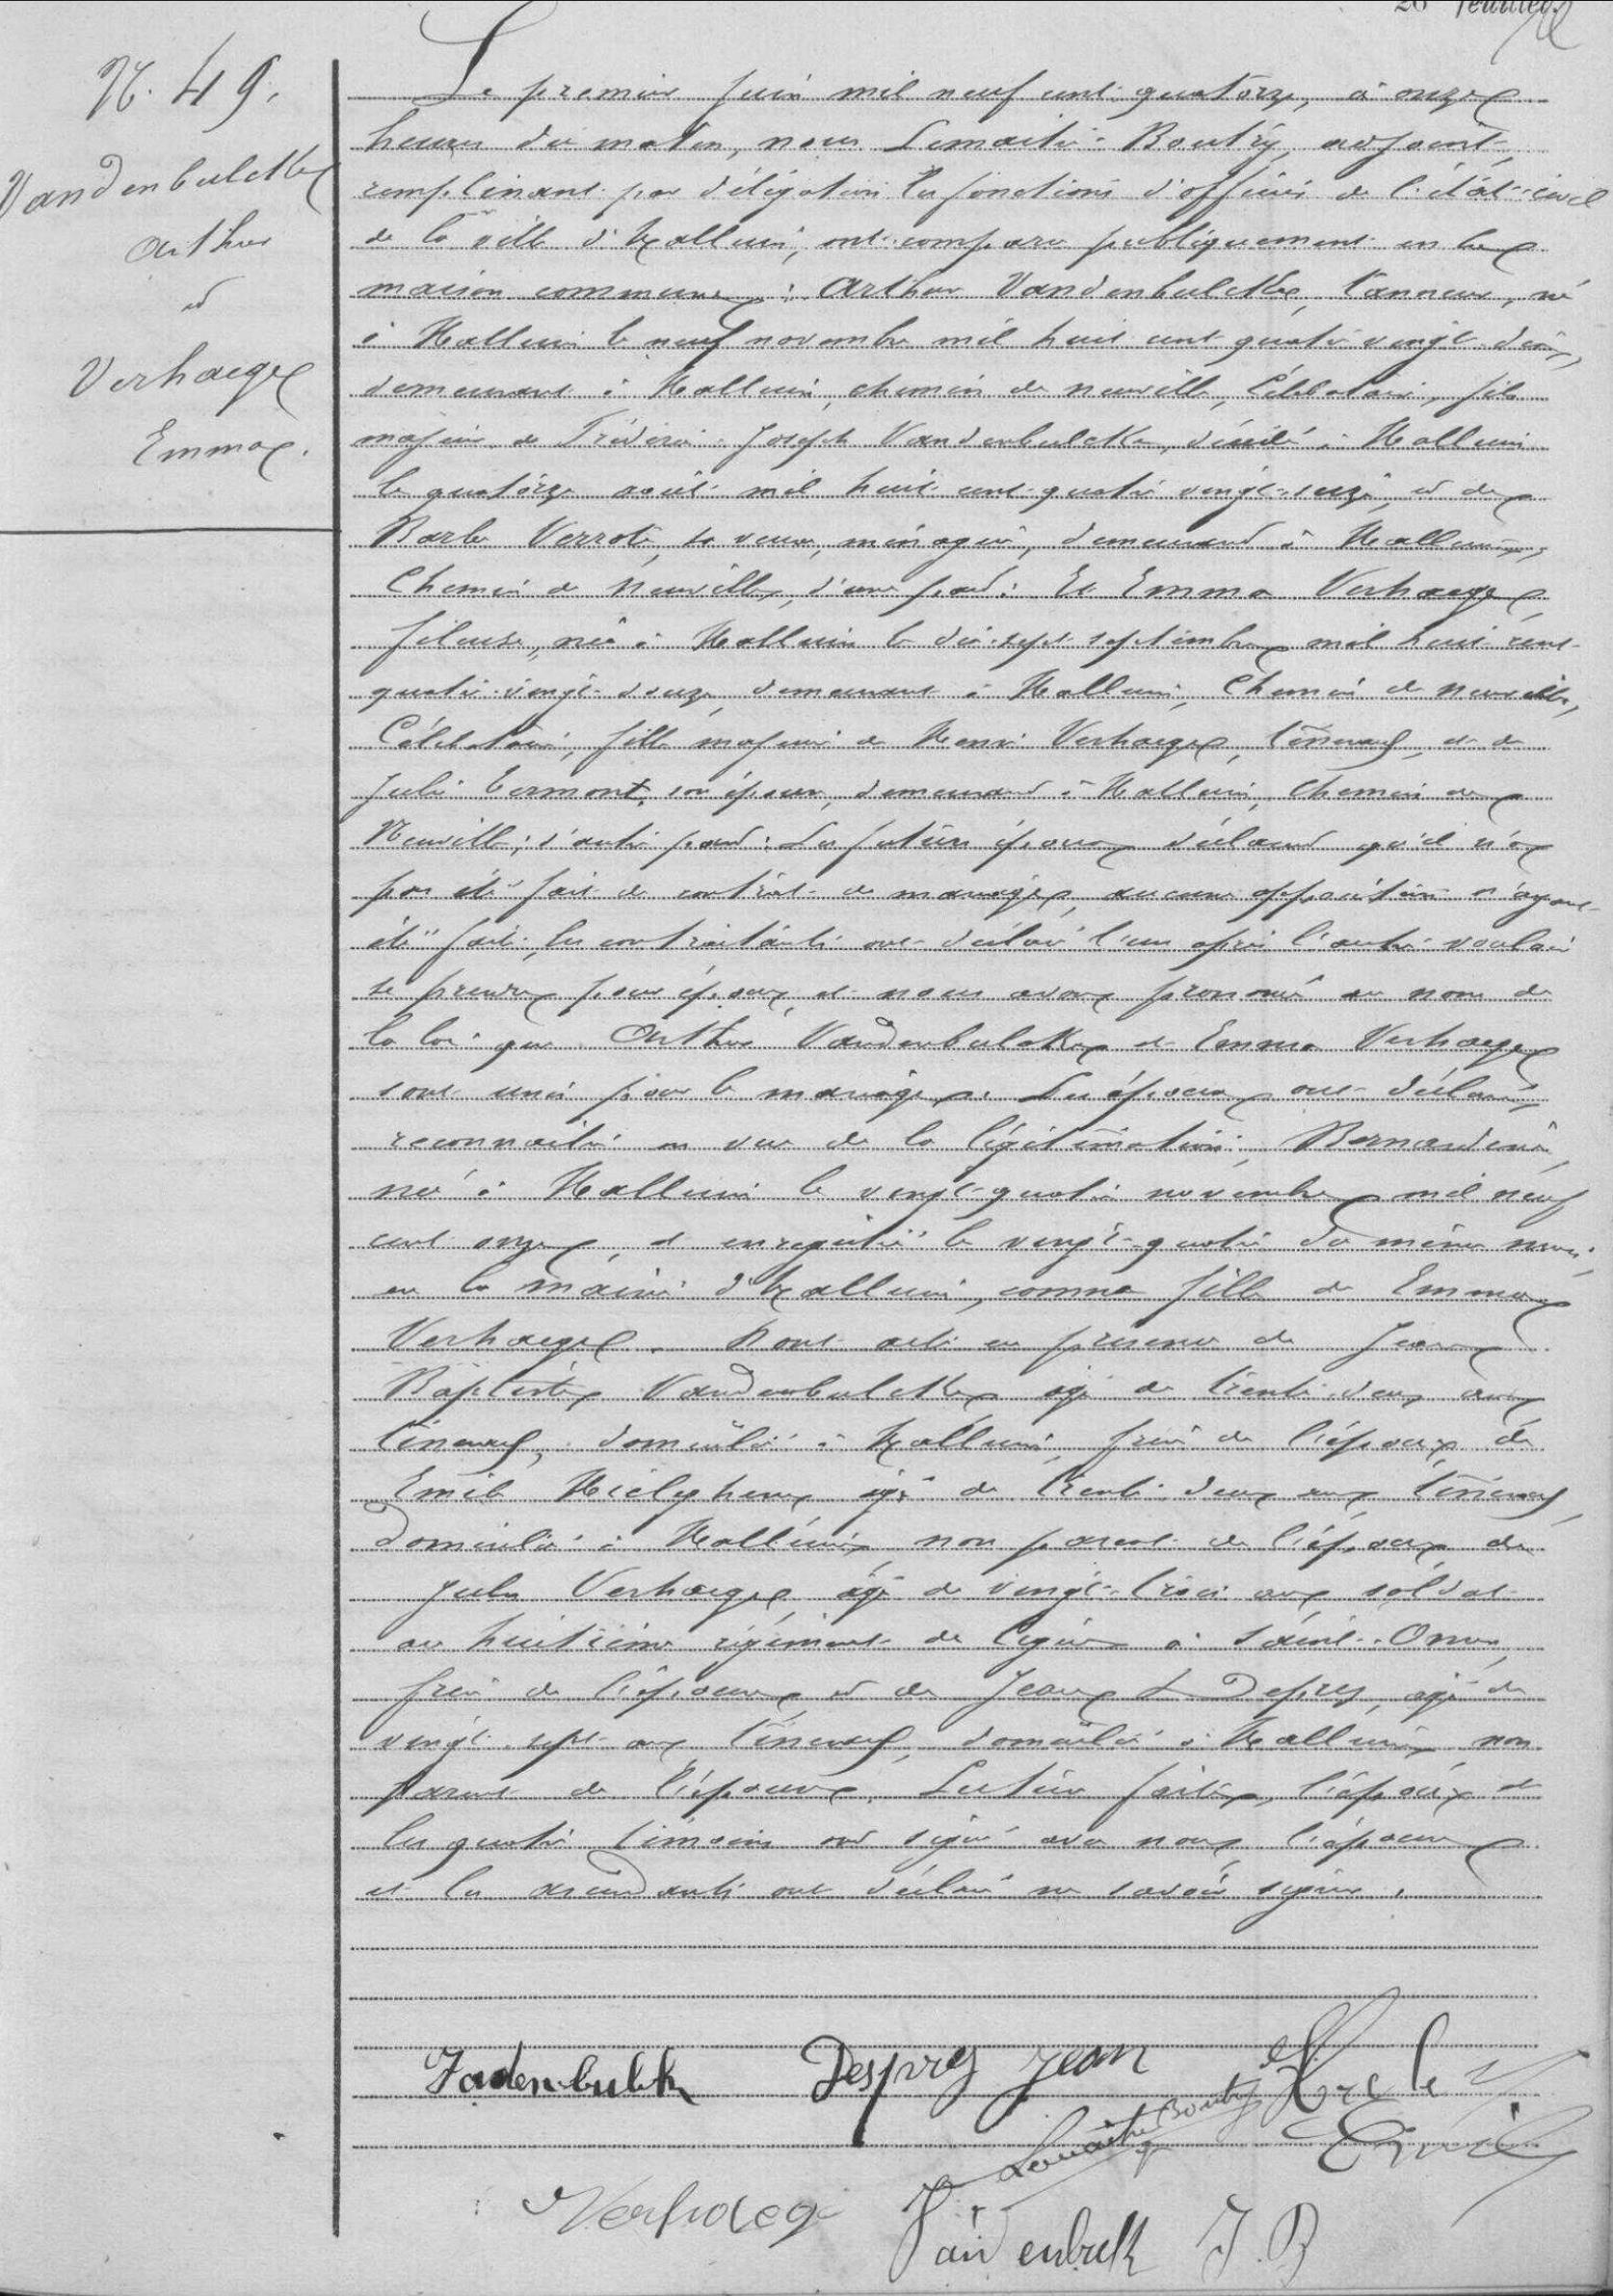 26e feuillet
N. 49.
Vandenbulcke
Arthur
et
Verhaeghe
Emma.
Le premier juin mil neuf cent quatorze, à onze
heures du matin, nous Lemaitre-Boutry, adjoint
remplissant par délégation les fonctions d'officier de l'état-civil
de la ville d'Halluin, ont comparu publiquement en la
maison commune : Arthur Vandenbulcke, tanneur, né
à Halluin le neuf novembre mil huit cent quatre vingt dix,
demeurant à Halluin, chemin de neuville, Célibataire, fils
majeur de Fréderic Joseph Vandenbulcke, décédé à Halluin
le quatorze août mil huit cent quatre vingt-seize, et de
Barbe Verrote, sa veuve, ménagère, demeurant à Halluin,
Chemin de Neuville, d'une part : Et Emma Verhaeghe,
fileuse, née à Halluin le dix-sept septembre mil huit cent
quatre-vingt-douze, demeurant à Halluin, Chemin de neuville,
Célibataire, fille majeure de Henri Verhaeghe, tisserand, et de
Julie Termont, son épouse, demeurant à Halluin, Chemin de
Neuville ; d'autre part : Les futurs époux déclarent qu'il n'a
pas été fait de contrat de mariage, aucune opposition n'ayant
été faite ; les contractants ont déclaré l'un après l'autre vouloir
se prendre pour époux, et nous avons prononcé au nom de
la loi que Arthur Vandenbulcke et Emma Verhaeghe
sont unis par le mariage. Les époux ont déclaré
reconnaitre en vue de la légitimation : Bernardine,
née à Halluin le vingt-quatre novembre mil neuf
cent onze, et enregistrée le vingt-quatre du même mois,
en la mairie d'Halluin, comme fille de Emma
Verhaeghe. Dont acte en présence de Jean
Baptiste Vandenbulcke âgé de trente-deux ans
tisserand, domicilié à Halluin, frère de l'époux, de
Emile âgé de trente-deux ans, tisserand,
domicilié à Halluin, non parent de l'époux, de
Jules Verhaeghe, âgé de vingt-trois ans soldat
au huitième régiment de ligne à Saint-Omer,
frère de l'épouse, et de Jean Depres, âgé de
vingt-sept ans tisserand, domicilié à Halluin non
parent de l'épouse. Lecture faite, l'époux et
les quatre témoins ont signé avec nous, l'épouse
et les ascendants ont déclaré ne savoir signer.
Vadenbulck Desprez Jean
Lemaitre Boutry
Emile
Verhaege
Vandenbulk J. B